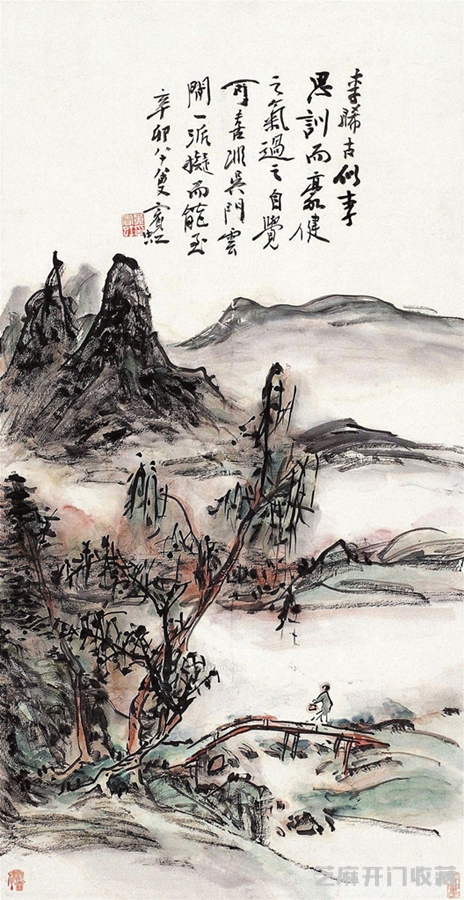 李晞古似李
思訓而豪健
之氣過之自覺
可喜吳門雲
間一派擬而能至
辛卯叟賓虹
芝麻开门收藏